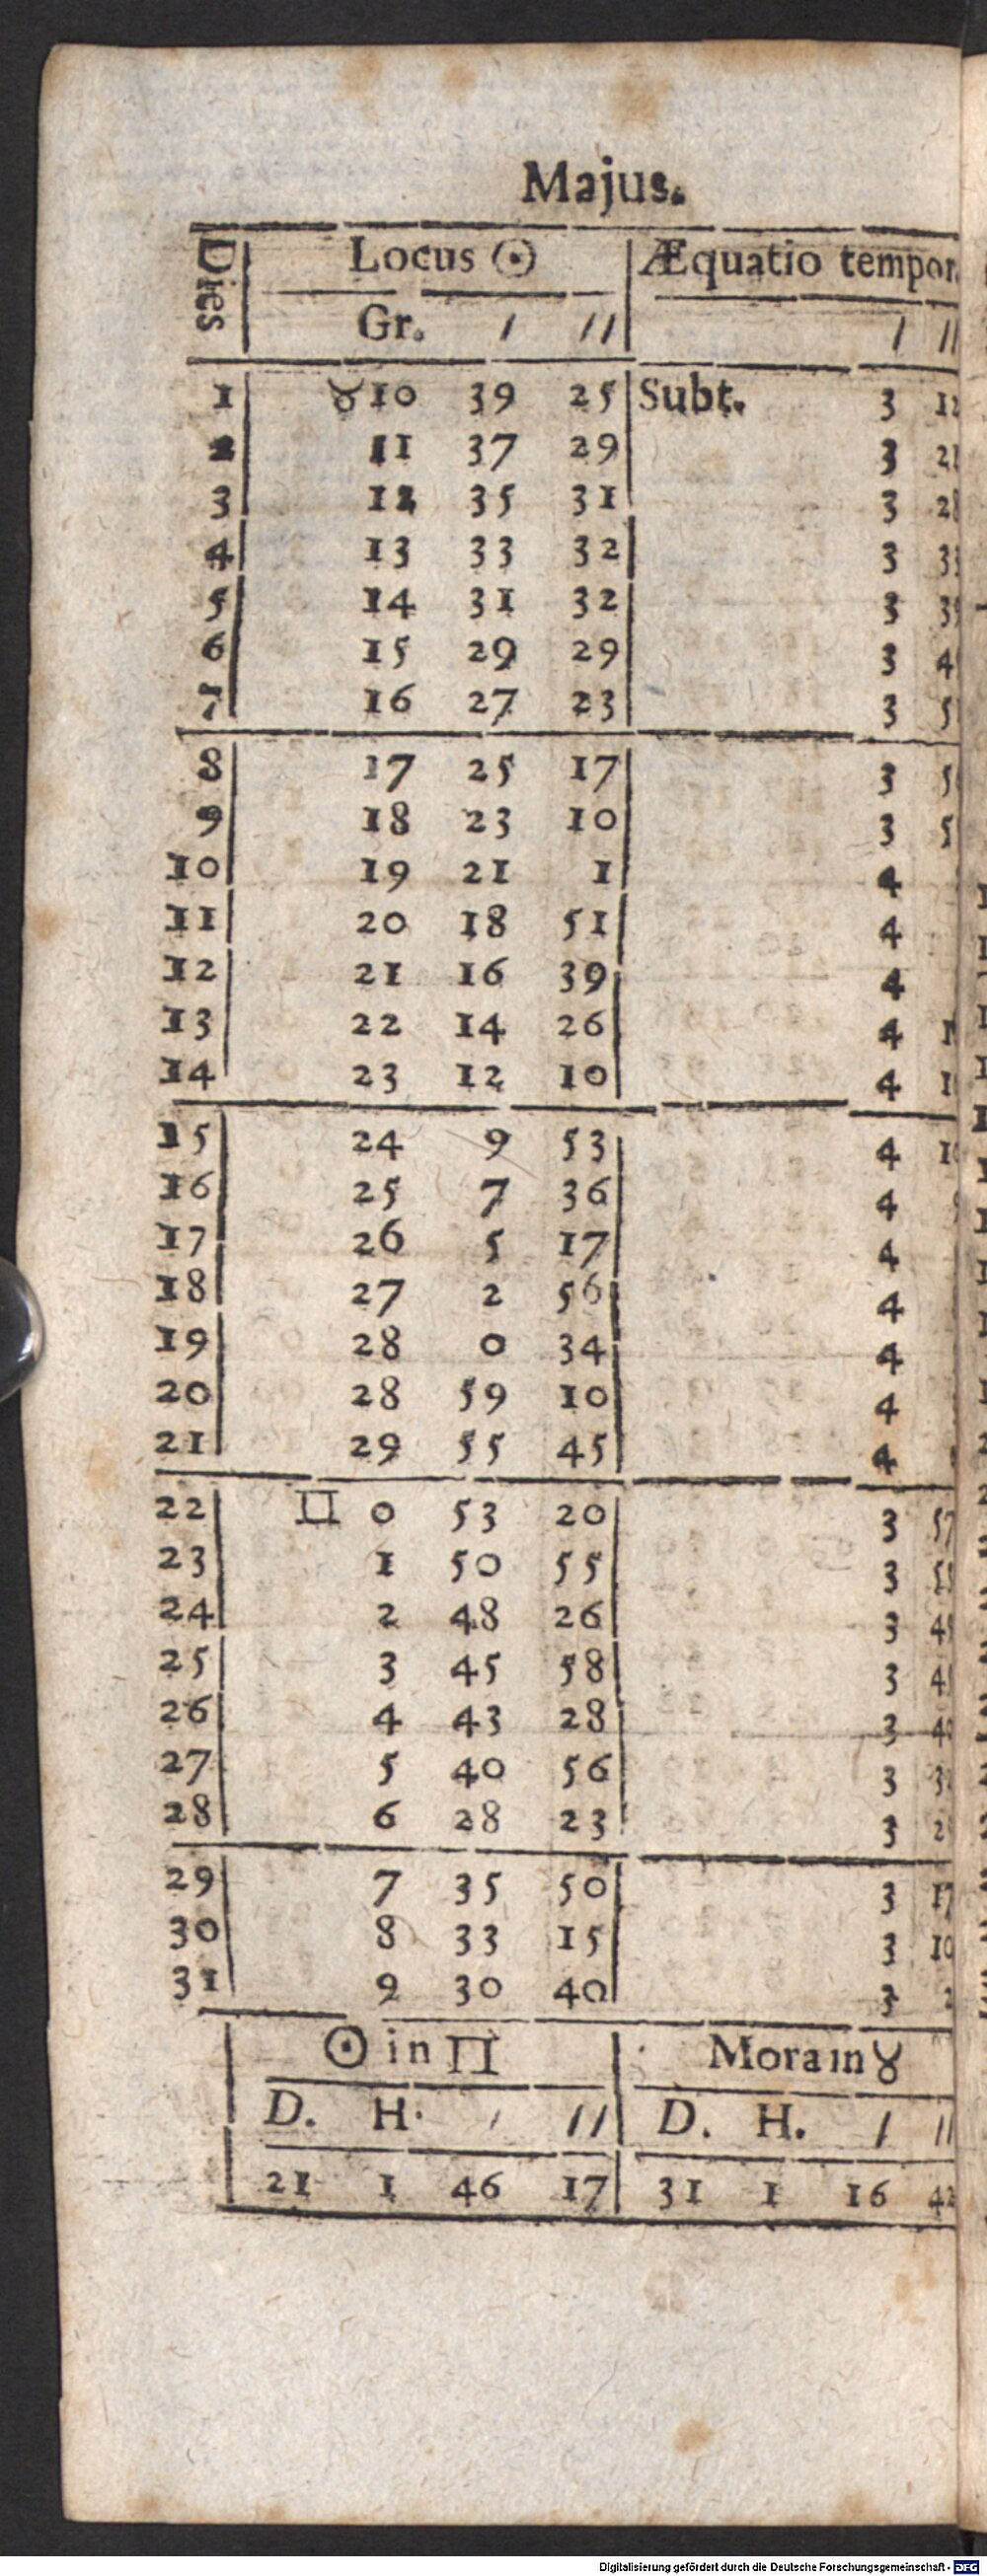 Majus.
Dies Locus ☉ Æquatio tempor.
Gr. / // / //
1 ♉ 10 39 25 Subt. 3 12
2 11 37 29 3 21
3 12 35 31 3 28
4 13 33 32 3
5 14 31 32 3
6 15 29 29 3
7 16 27 23 3
8 17 25 17 3
9 18 23 10 3
10 19 21 1 4
11 20 18 51 4
12 21 16 39 4
13 22 14 26 4
14 23 12 10 4
15 24 9 53 4
16 25 7 36 4
17 26 5 17 4
18 27 2 56 4
19 28 0 34 4
20 28 59 10 4
21 29 55 45 4
22 ♊ 0 53 20 3 57
23 1 50 55 3
24 2 48 26 3
25 3 45 58 3
26 4 43 28 3
27 5 40 56 3
28 6 28 23 3
29 7 35 50 3 17
30 8 33 15 3 10
31 9 30 40 3
☉ in ♊ Mora in ♉
D. H. / // D. H. / //
21 1 46 17 31 1 16 42
Digitalisierung gefördert durch die Deutsche Forschungsgemeinschaft - DFG